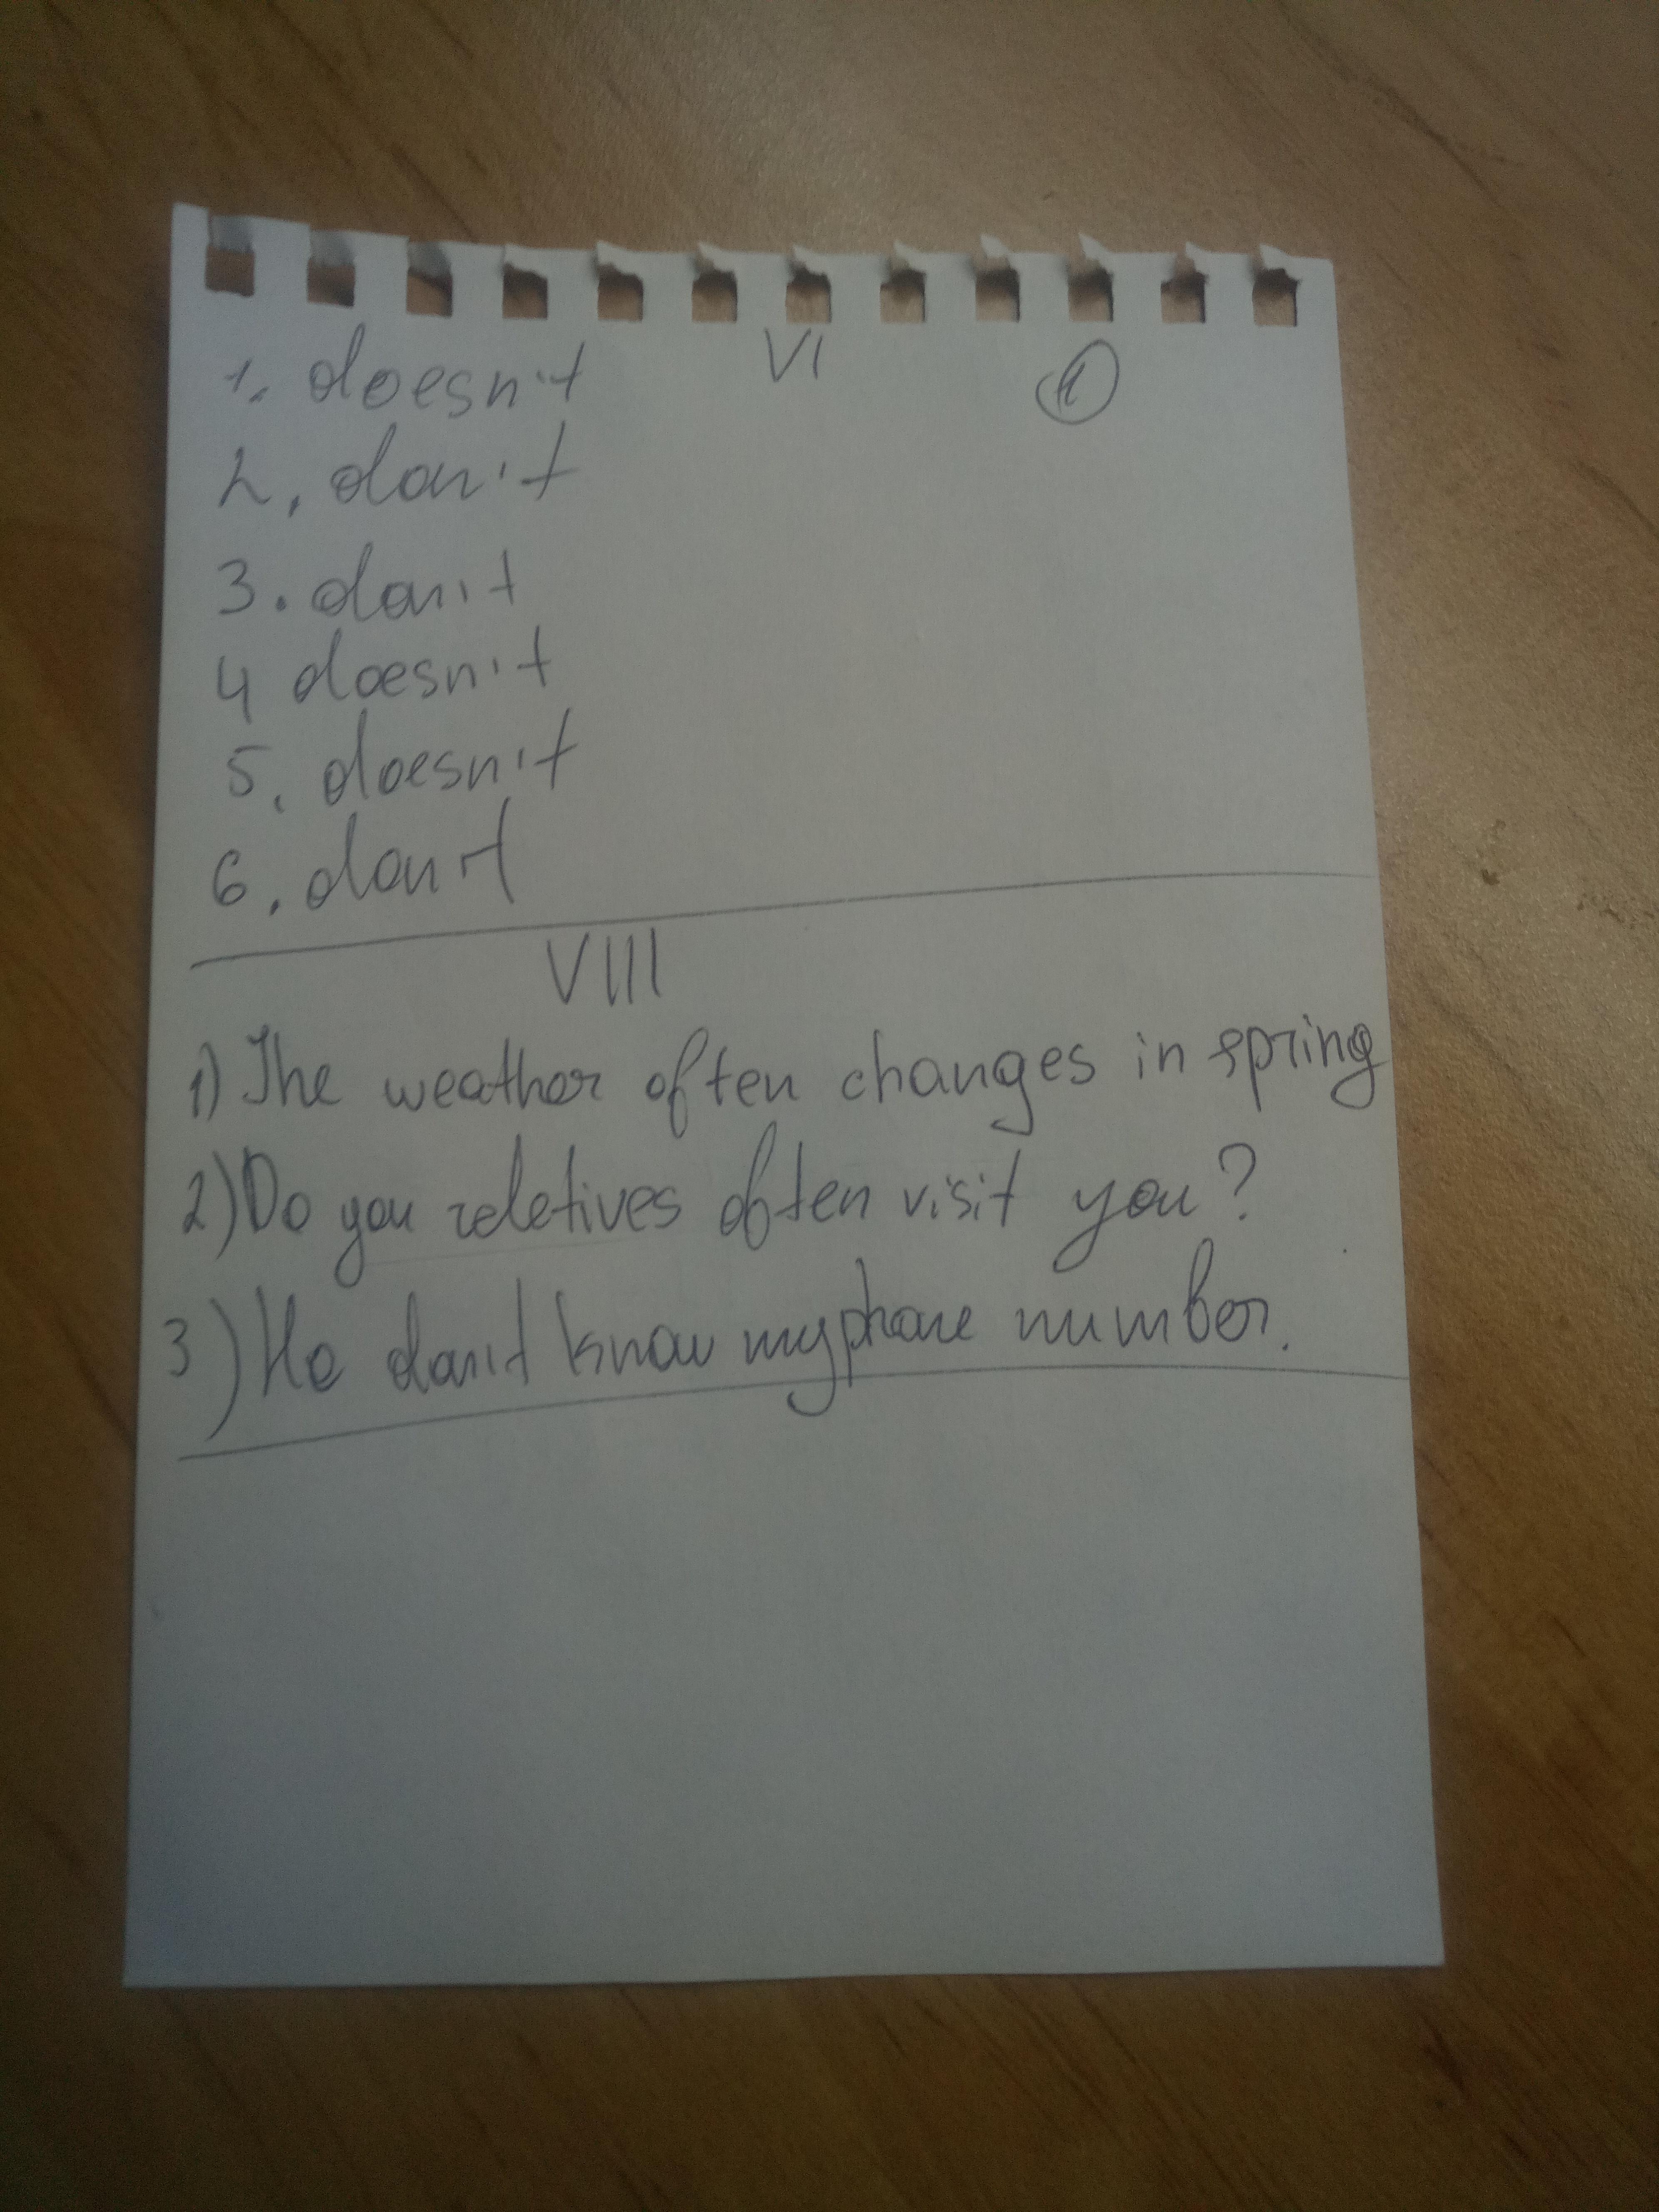 VI 1
1. doesn't
2. don't
3. don't
4 doesn't
5. doesn't
6. don't
VIII
1) The weather often changes in spring
2) Do you reletives often visit you?
3) He don't know my phone number.